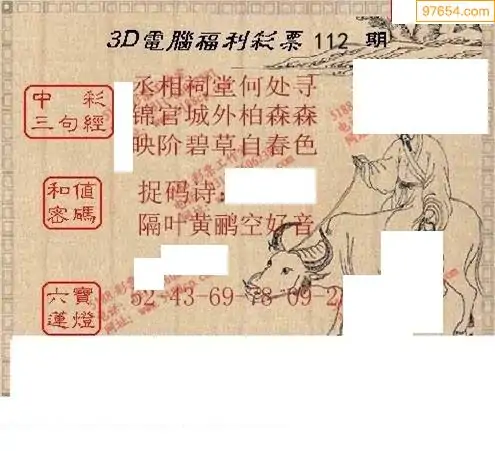 97654.com
3D電腦福利彩票 112 期
中彩
三句經
丞相祠堂何处寻
锦官城外柏森森
映阶碧草自春色
和值
密碼
捉码诗:
隔叶黄鹂空好音
六寶
蓮燈
52-43-69-78-09-2